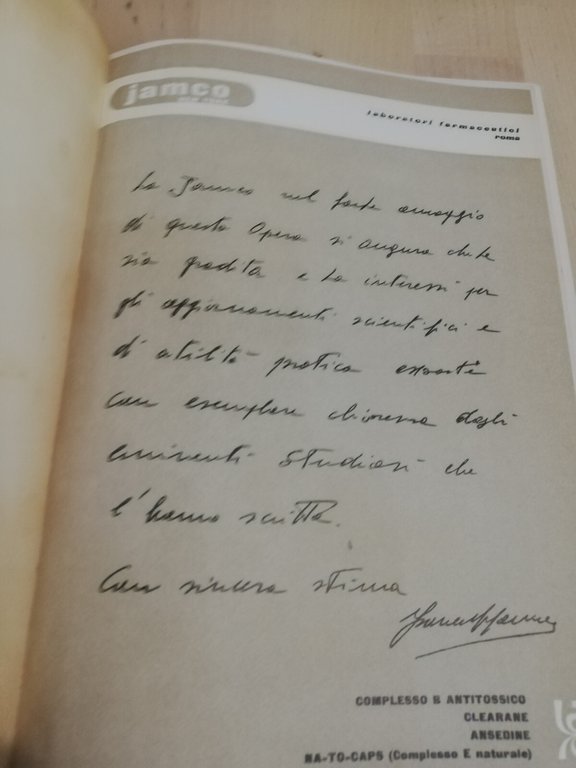 jamco
laboratori farmaceutici
roma
La Jamco nel farle omaggio
di questa Opera si augura che Le
sia gradita e La interessi per
gli aggiornamenti scientifici e
di utilità pratica esposti
con esemplare chiarezza dagli
eminenti studiosi che
l'hanno scritta.
Con sincera stima
COMPLESSO B ANTITOSSICO
CLEARANE
ANSEDINE
NA-TO-CAPS (Complesso E naturale)